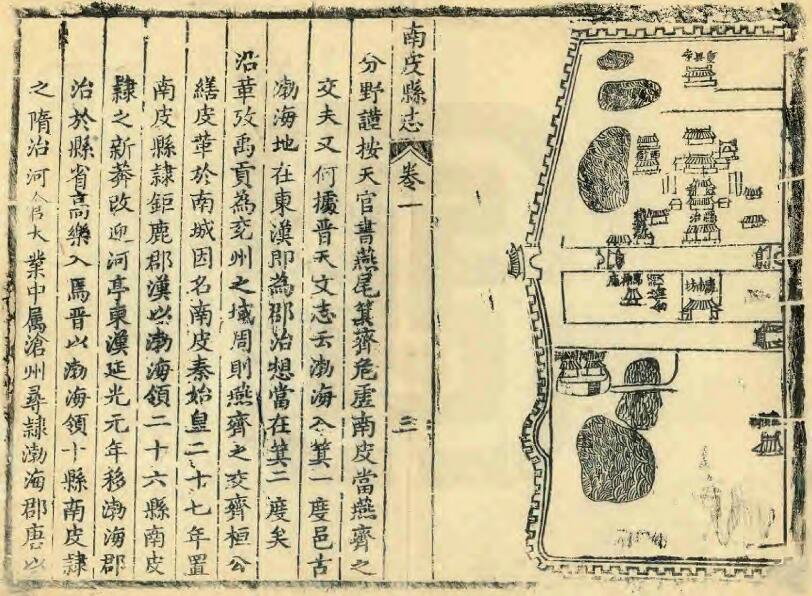 縣治
南皮縣志
卷一
三
分野謹按天官書燕尾箕齊危虛南皮當燕齊之
交夫又何據晉天文志云渤海入箕一度邑古
渤海地在東漢即為郡治想當在箕二度矣
沿革攷禹貢為兖州之域周則燕齊之交齊桓公
繕皮革於南城因名南皮秦始皇二十七年置
南皮縣隷鉅鹿郡漢以渤海領二十六縣南皮
隷之新莽改迎河亭東漢延光元年移渤海郡
治於縣省高樂入焉晉以渤海領十縣南皮隷
之隋治河大業中属滄州尋隷渤海郡唐以